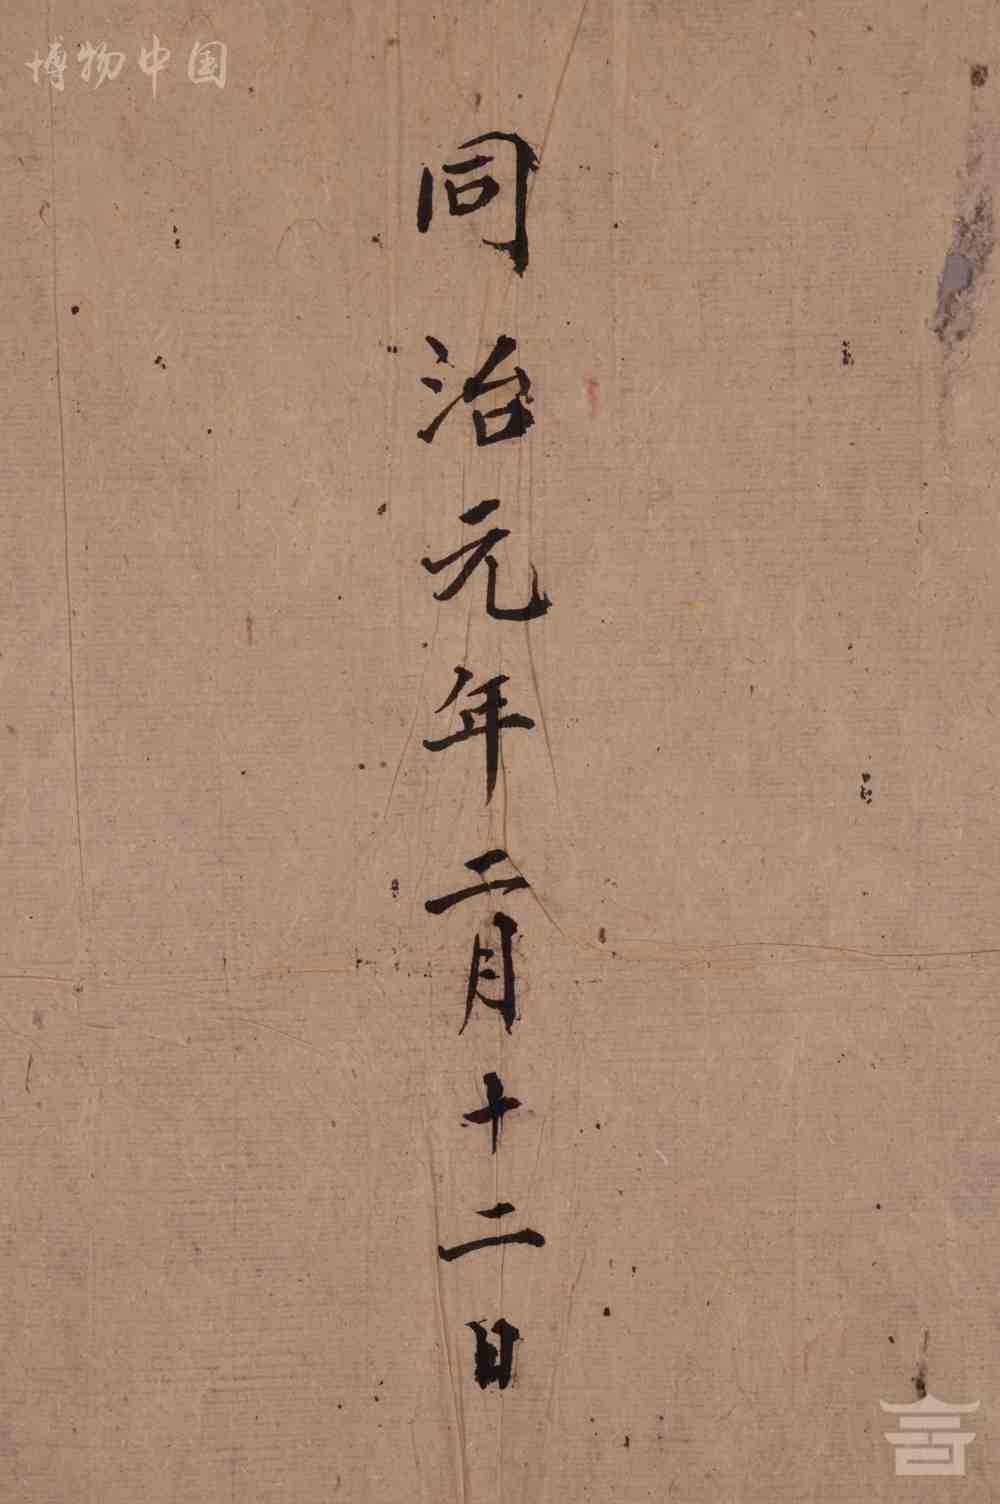 博物中国
同治元年二月十二日